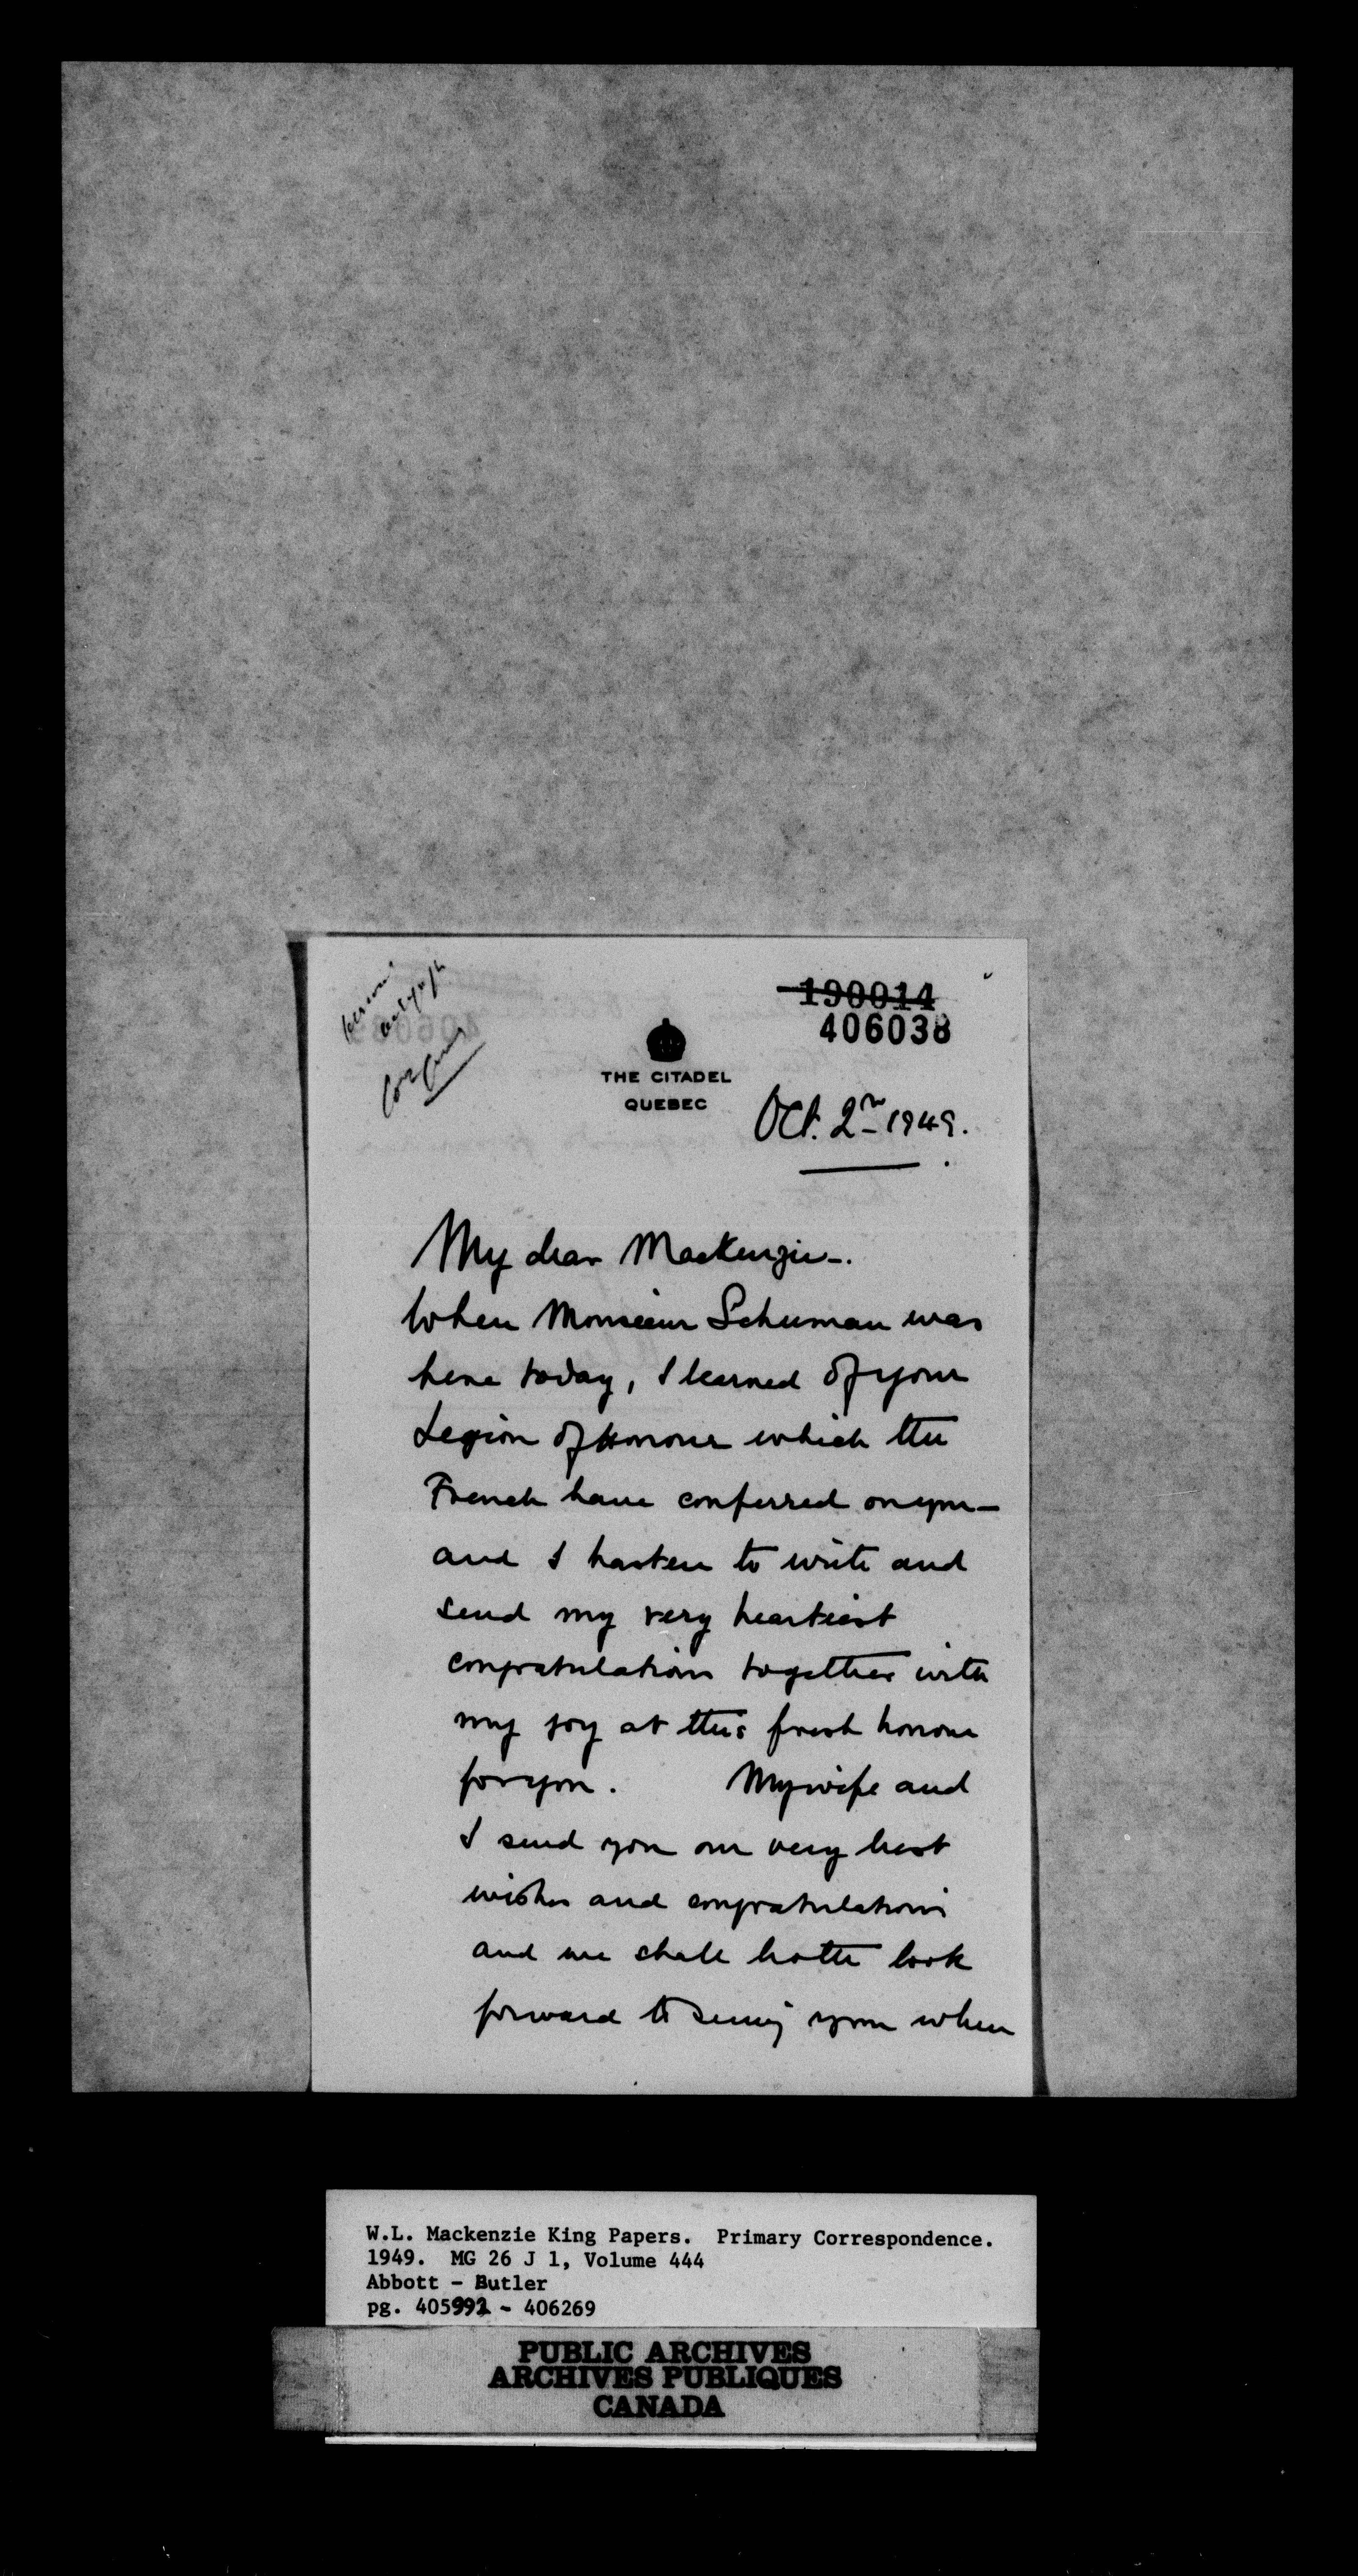 190014
406038
THE CITADEL
QUEBEC
Oct. 2nd 1949.
My dear Mackenzie -.
When Monsieur Schuman was
here today, I learned of your
Legion of Honour which the
French have conferred on you -
and I hasten to write and
send my very heartiest
congratulations together with
my joy at this fresh honour
for you. My wife and
I send you our very best
wishes and congratulations
and we shall both look
forward to seeing you when
W.L. Mackenzie King Papers. Primary Correspondence.
1949. MG 26 J 1, Volume 444
Abbott - Butler
pg. 405992 - 406269
PUBLIC ARCHIVES
ARCHIVES PUBLIQUES
CANADA